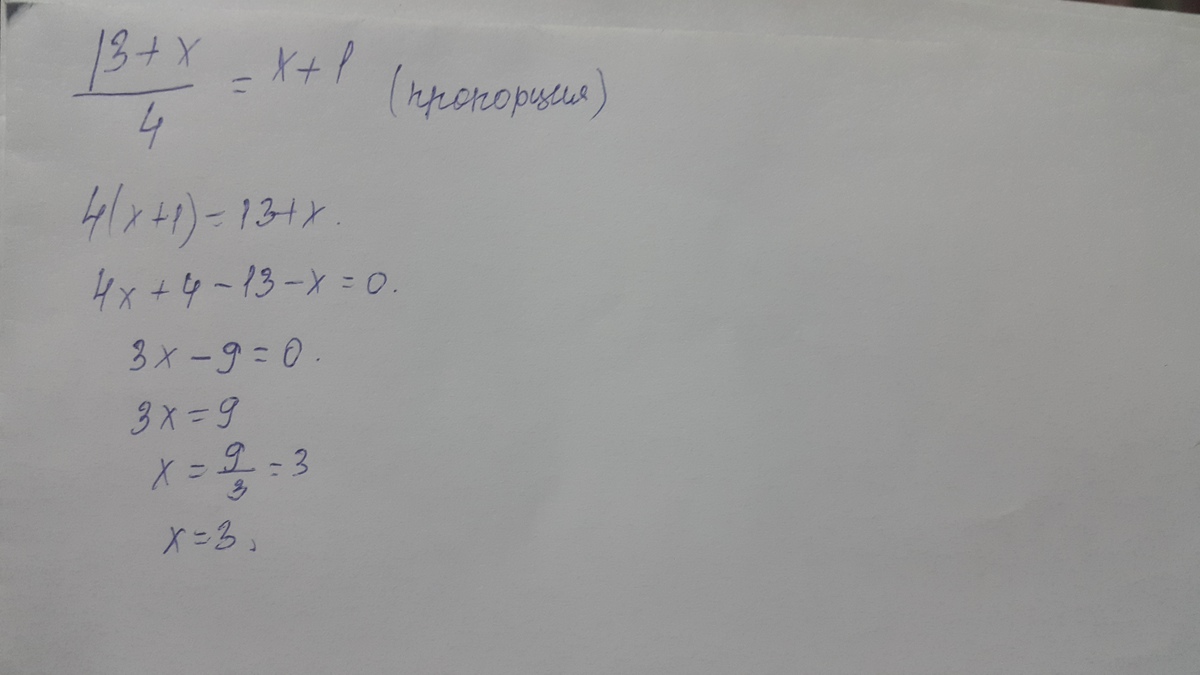 13+x/4 = x+1 (пропорция)
4(x+1)=13+x.
4x+4-13-x=0.
3x-9=0.
3x=9
x=9/3=3
x=3,